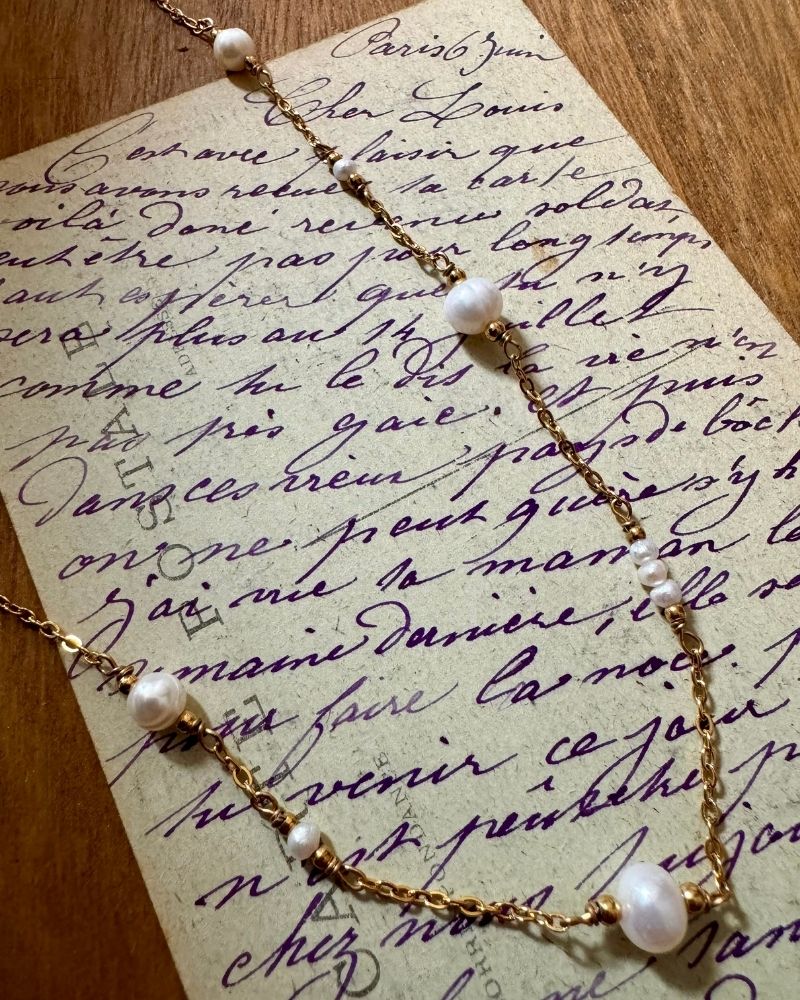 Paris 6 Juin
Cher Louis
C'est avec plaisir que
nous avons recue ta carte
voilà donc revenue soldat,
peut être pas pour longtemps
faut espérer que tu n'y
sera plus au 14 juillet
comme tu le dis la vie n'en
pas très gaie. et puis
Dans ces vieux pays de bôch
on ne peut guère s'y h
J'ai vue ta maman la
semaine dernière, elle se
pour faire la noce. p
tu venir ce jour
n'est peutêtre p
chez nous toujou
me san
CARTE POSTALE
ADRESSE